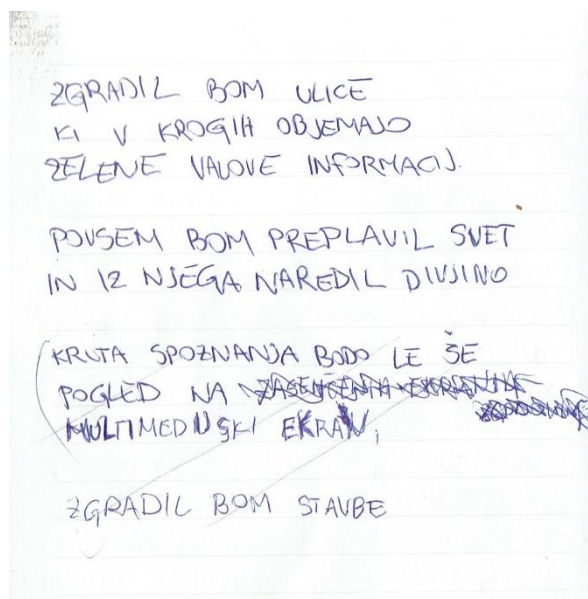 ZGRADIL BOM ULICE
KI V KROGIH OBJEMAJO
ZELENE VALOVE INFORMACIJ.
POVSEM BOM PREPLAVIL SVET
IN IZ NJEGA NAREDIL DIVJINO
KRUTA SPOZNANJA BODO LE ŠE
POGLED NA
MULTIMEDIJSKI EKRAN,
ZGRADIL BOM STAVBE